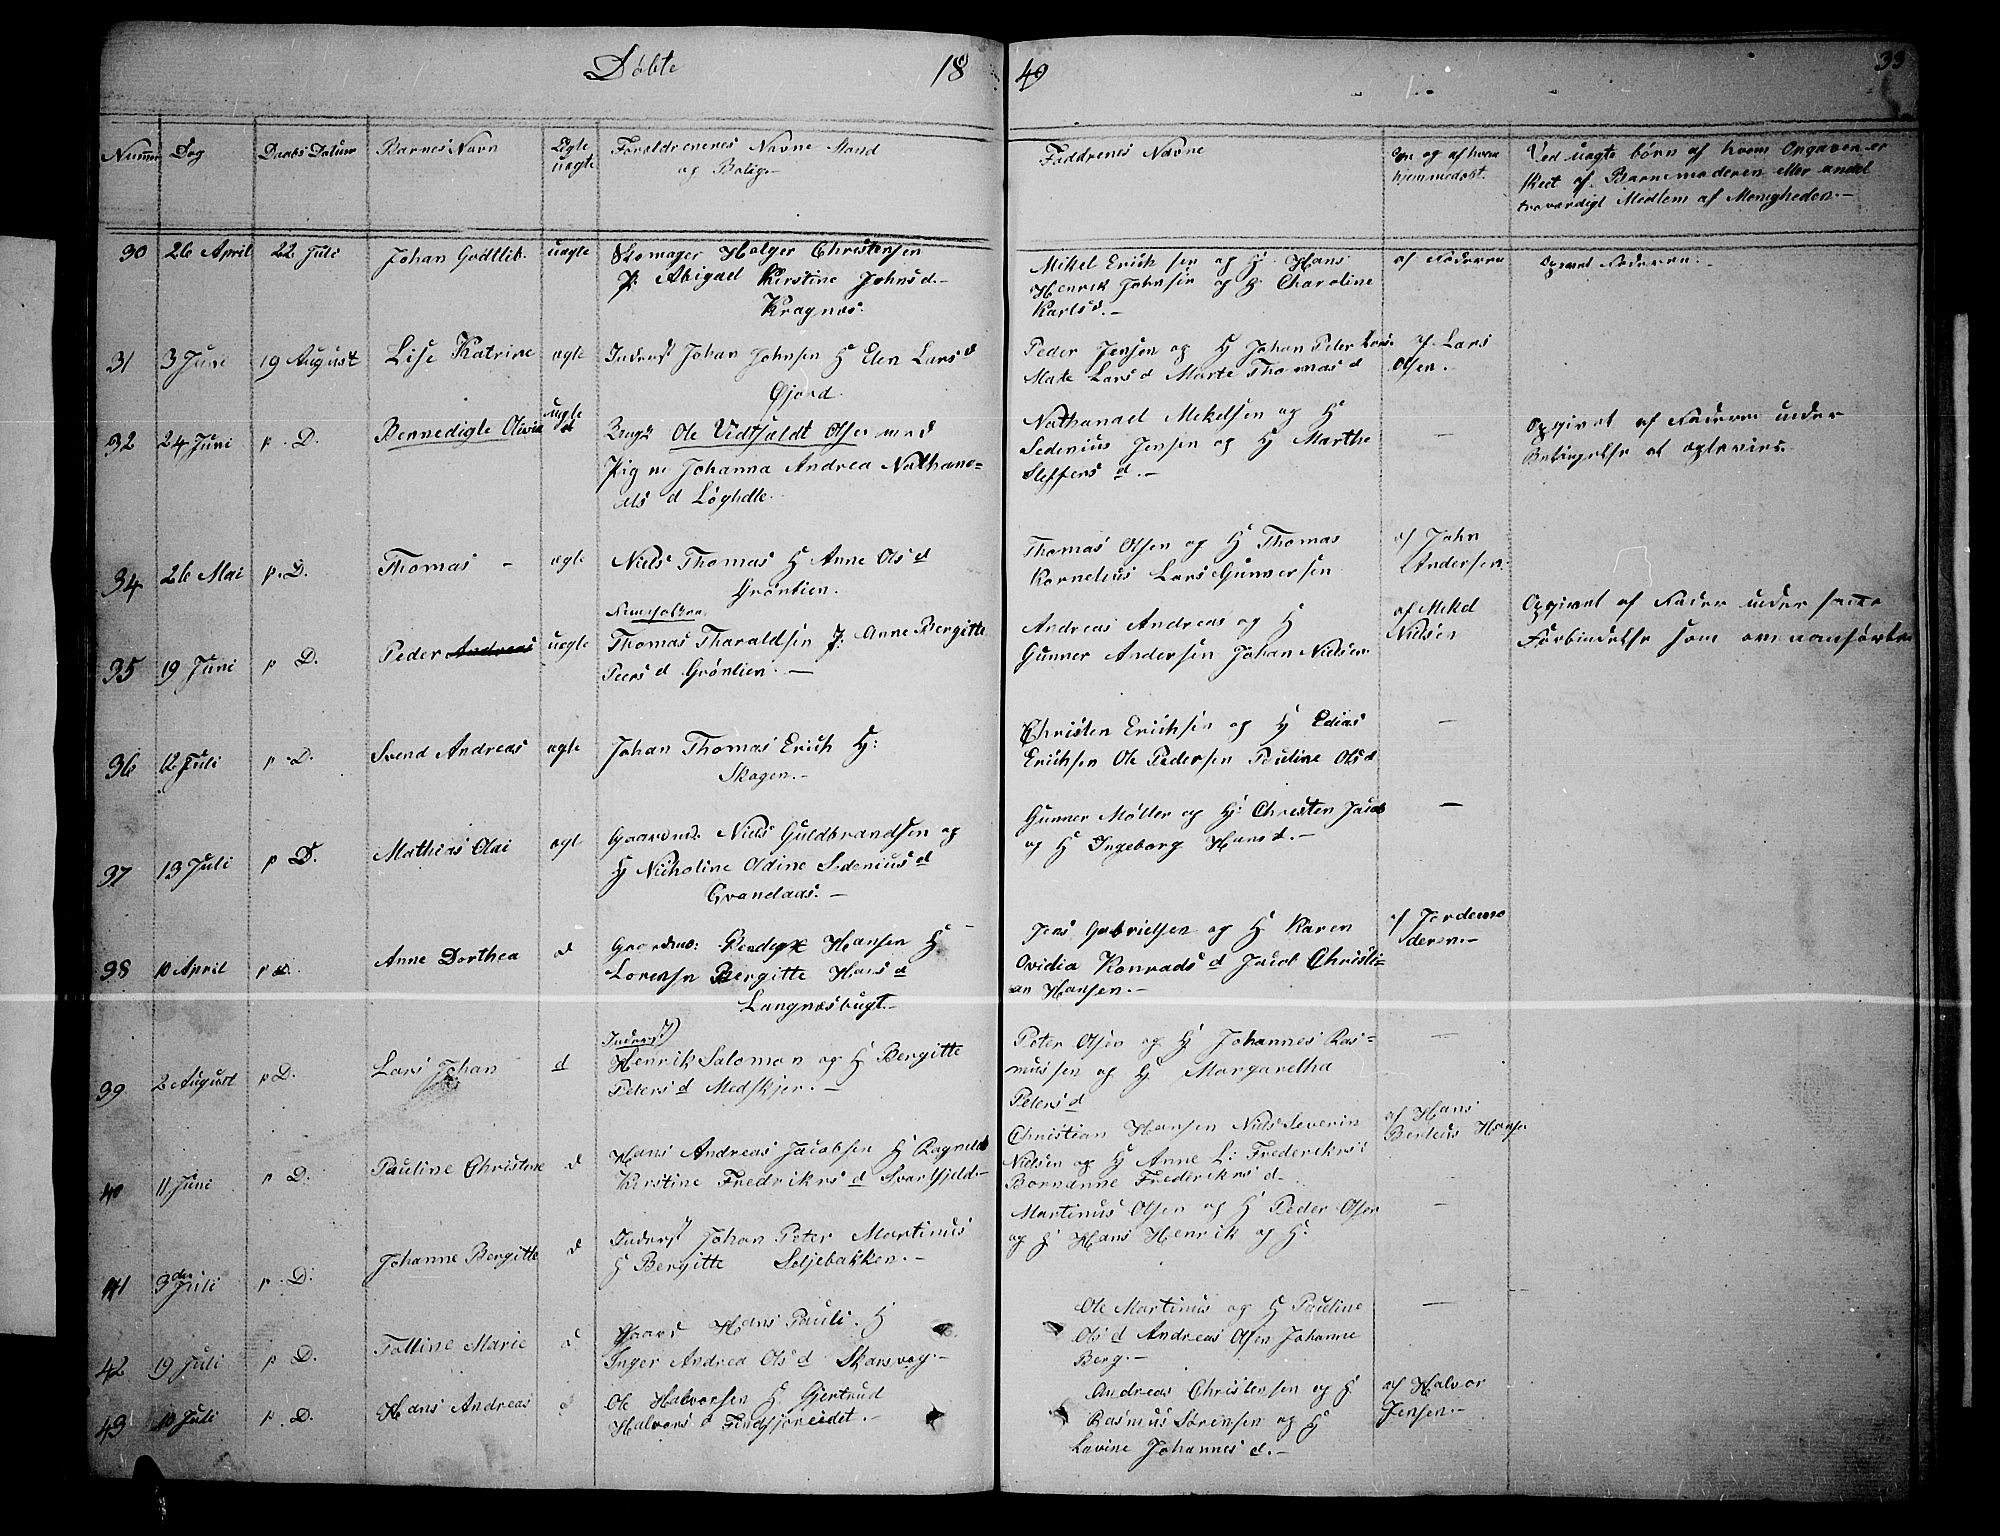 Døbte 18 49 33
Nummer Dog Daabs Datum Barnes Navn Ægte uægte Foreldrenenes Navne Stand og Bolig Faddrenes Navne Om og af hvem hjemmedøbt. Ved uægte børn af hvem Opgaven er skeet af Barnemoderen eller andet troværdigt Medlem af Menigheden.-
30 26 April 22 Juli Johan Godtlib. uægte Skomager Holger Christensen
P: Abigael Kirstine Johns d.-
Kragnæs.
Mikel Erichsen og H. Hans
Henrik Johnsen og H. Charoline
Karls d.-
af Faderen
Opgivet Faderen.
31 3 Juni 19 August Lise Katrine ægte Inderst Johan Johnsen H Elen Lars d
Øjord.
Peder Jensen og H Johan Peter Lars
Mate Lars d Marte Thomas d
J. Lars
Olsen.
32 24 Juni p. D. Bennedigte Olivia uægte d
Ole Vidtfeldt Olsen med
Pigen Johanna Andrea Nathana=
els d Løghdte.
Nathanael Mikelsen og H
Sedenius Jensen og H Marthe
Steffens d.-
-
Opgivet af Faderen under
Betingelse at ægtevies.
34 26 Mai p. D. Thomas - ægte Niels Thomas H Anne Ols d
Grøntien.
Thomas Olsen og H Thomas
Kornelius Lars Gunnersen
af John
Andersen.
35 19 Juni p D. Peder Andreas uægte
Thomas Tharaldsen P: Anne Bergitte
Peers d Grøntien.-
Andreas Andreas og H
Gunner Andersen Johan Nielsen
af Mikel
Nielsen
Opgivet af Fader under samme
Forbindelse som ovenanførte
36 12 Juli p. D. Svend Andreas ægte Johan Thomas Erich H:
Skogen.-
Christen Erichsen og H Edias
Erichsen Ole Pedersen Pauline Ols d
-
37 13 Juli p D. Mathias Olai ægt Gaardmd: Niels Guldbrandsen og
H Nicholine Oldine Sedenius d
Grandaas.-
Gunner Møller og H: Christen Jacob
og H Ingeborg Hans d.-
-
38 10 April p d. Anne Dorthea d Gaardmd: Hansen H
Lorense Bergitte Hans d
Langnæsbugt.-
Jens Gabrielsen og H Karen
Ovidia Konrads d Jacob Christi=
an Hansen.-
af Jordemo
deren.-
39 2 August p D. Lars Johan d
Inderst
Henrik Salomon og H Bergitte
Peters d Medskjer.-
Peter Olsen og H Johannes Ras=
mussen og H Margaretha
Peters d
-
40 11 Juni p D. Pauline Christine d Hans Andreas Jacobsen H Ragnild
Kirstine Fredrikrs d Svartfjeld-
Christian Hansen Niels Severin
Nielsen og H Anne L: Frederikrs
Bornanne Frederikrs d-
af Hans
Berteus Hanse
41 3die Juli p. D. Johanne Bergitte d Inderst Johan Peter Martinus
H Bergitte Seljebakken.-
Martinus Olsen og H Peder Olsen
og H Hans Henrik og H.
-
42 19 Juli p D. Talline Marie d Gaard Hans Pauli. H
Inger Andrea Ols d Skarsvog.-
Ole Martinus og H Pauline
Ols d Andreas Olsen Johanne
Berg.-
-
43 10 Juli p. D. Hans Andreas d Ole Halvorsen H Gjertrud
Halvors d Findfjoreidet.-
Andreas Christensen og H
Rasmus Sørensen og H
Lavine Johannes d.-
af Halvor
Jensen.-